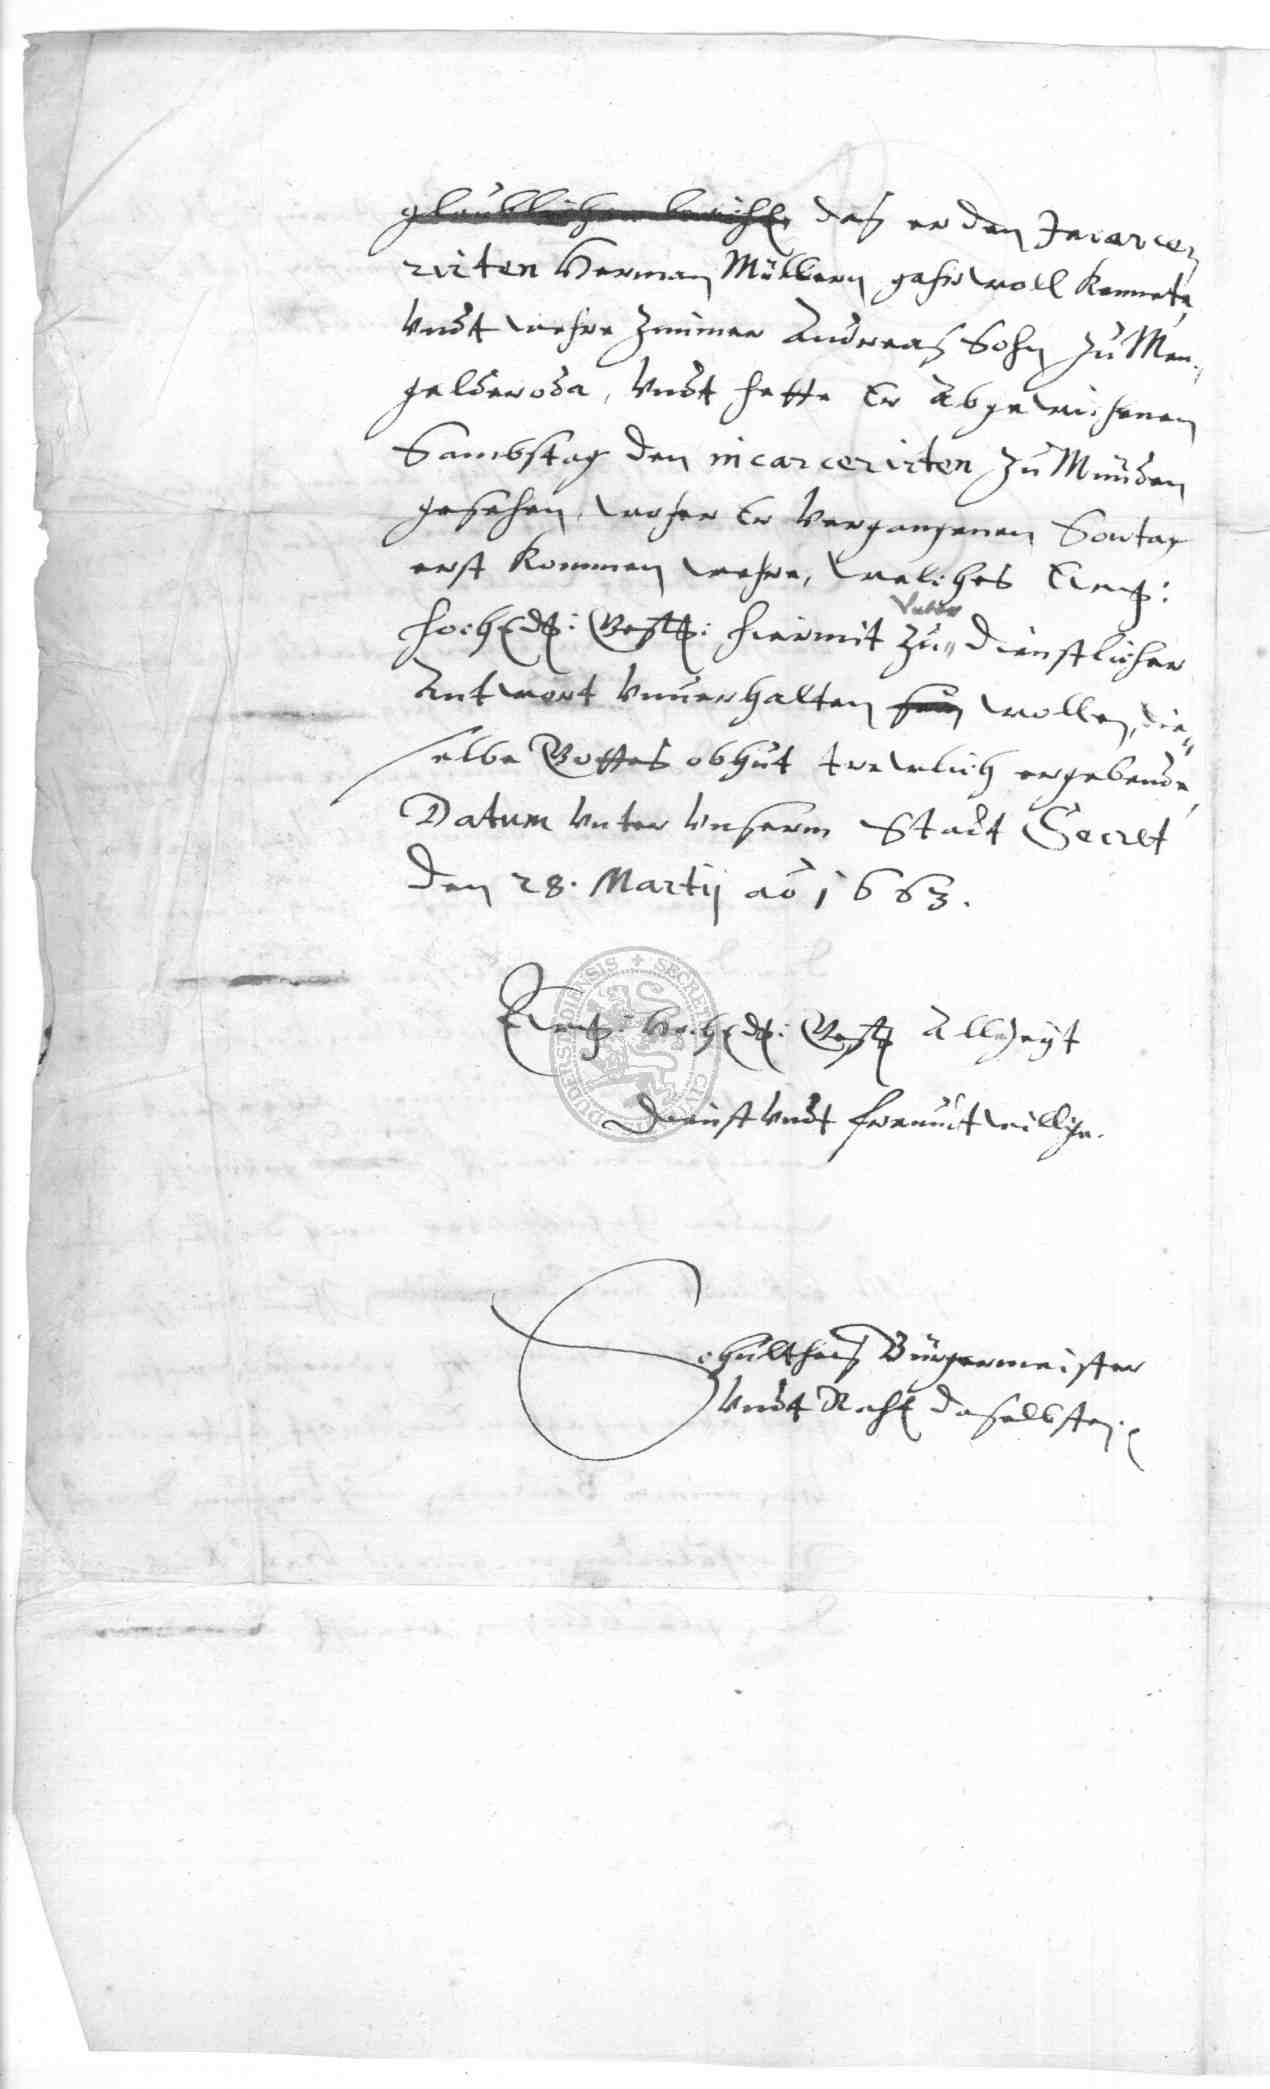 glaublichen bericht das er den Incarce„
rirten Herman Müllern gahr woll kennete,
undt wehre Zimmer Andreas Sohn zu Men„
gelderoda, undt hette Er abgewichenen
Sambstag den incarcerirten zu Münden
gesehen, woher Er vergangenen Sontag
erst kommen wehre, welches Ewg:
hochEdg: Vestg: hiermit zu„ dienstlicher
Antwort unverhalten sein wollen, die„
selbe Gottes obhut trewlich ergebende,
Datum unter unserm Stadt Secret
den 28. Martij aō 1663.
Ewg: HochEdg: Vestg Allzeyt
Dienst undt freundtwillige.
Schultheis Bürgermeister
undt Raht daselbsten
SECRET CIVI DUDERSTADIENSIS